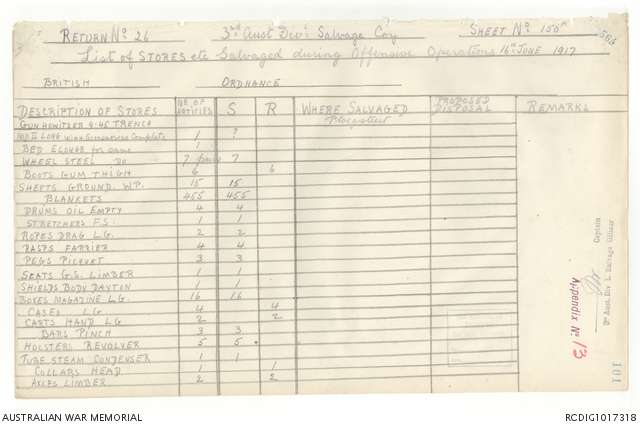 RETURN No 26 3rd Aust Divl Salvage Coy SHEET No 150A
List of STORES etc Salvaged during Offensive Operations 16th JUNE 1917
BRITISH ORDNANCE
DESCRIPTION OF STORES No OF ARTICLES S R WHERE SALVAGED PROPOSED DISPOSAL REMARKS
GUN HOWITZER 4.45 TRENCH Ploegsteert
LONG Complete 1 ?
BED for same 1
WHEEL STEEL DO 7 pairs 7
BOOTS GUM THIGH 6 6
SHEETS GROUND. W.P. 15 15
BLANKETS 455 455
DRUMS OIL EMPTY 4 4
STRETCHERS F.S. 1 1
ROPES DRAG L.G. 2 2
RASPS FARRIER 4 4
PEGS PICQUET 3 3
SEATS G.S. LIMBER 1 1
SHIELDS BODY DAYTON 1 1
BOXES MAGAZINE L.G. 16 16
CASES LG 4 4
CARTS HAND LG 2 2
BARS PINCH 3 3
HOLSTERS REVOLVER 5 5
TUBE STEAM CONDENSER 1 1
COLLARS HEAD 1 1
AXLES LIMBER 2 2
Captain
3rd Aust. Div'l. Salvage Officer
Appendix No 13
101
AUSTRALIAN WAR MEMORIAL RCDIG1017318